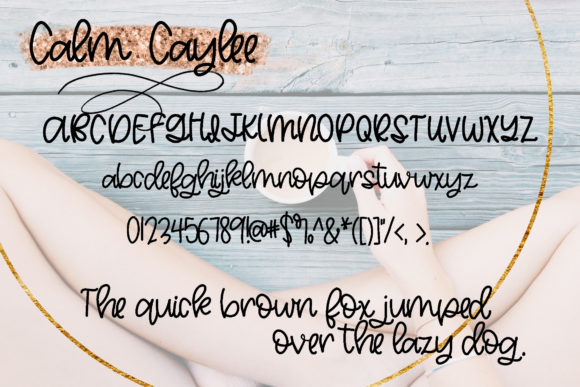 Calm Caylee
ABCDEFGHIJKLMNOPQRSTUVWXYZ
abcdefghijkelmnopqrstuvwxyz
0123456789!@#$%^&*()[]"/<, >.
The quick brown fox jumped
over the lazy dog.